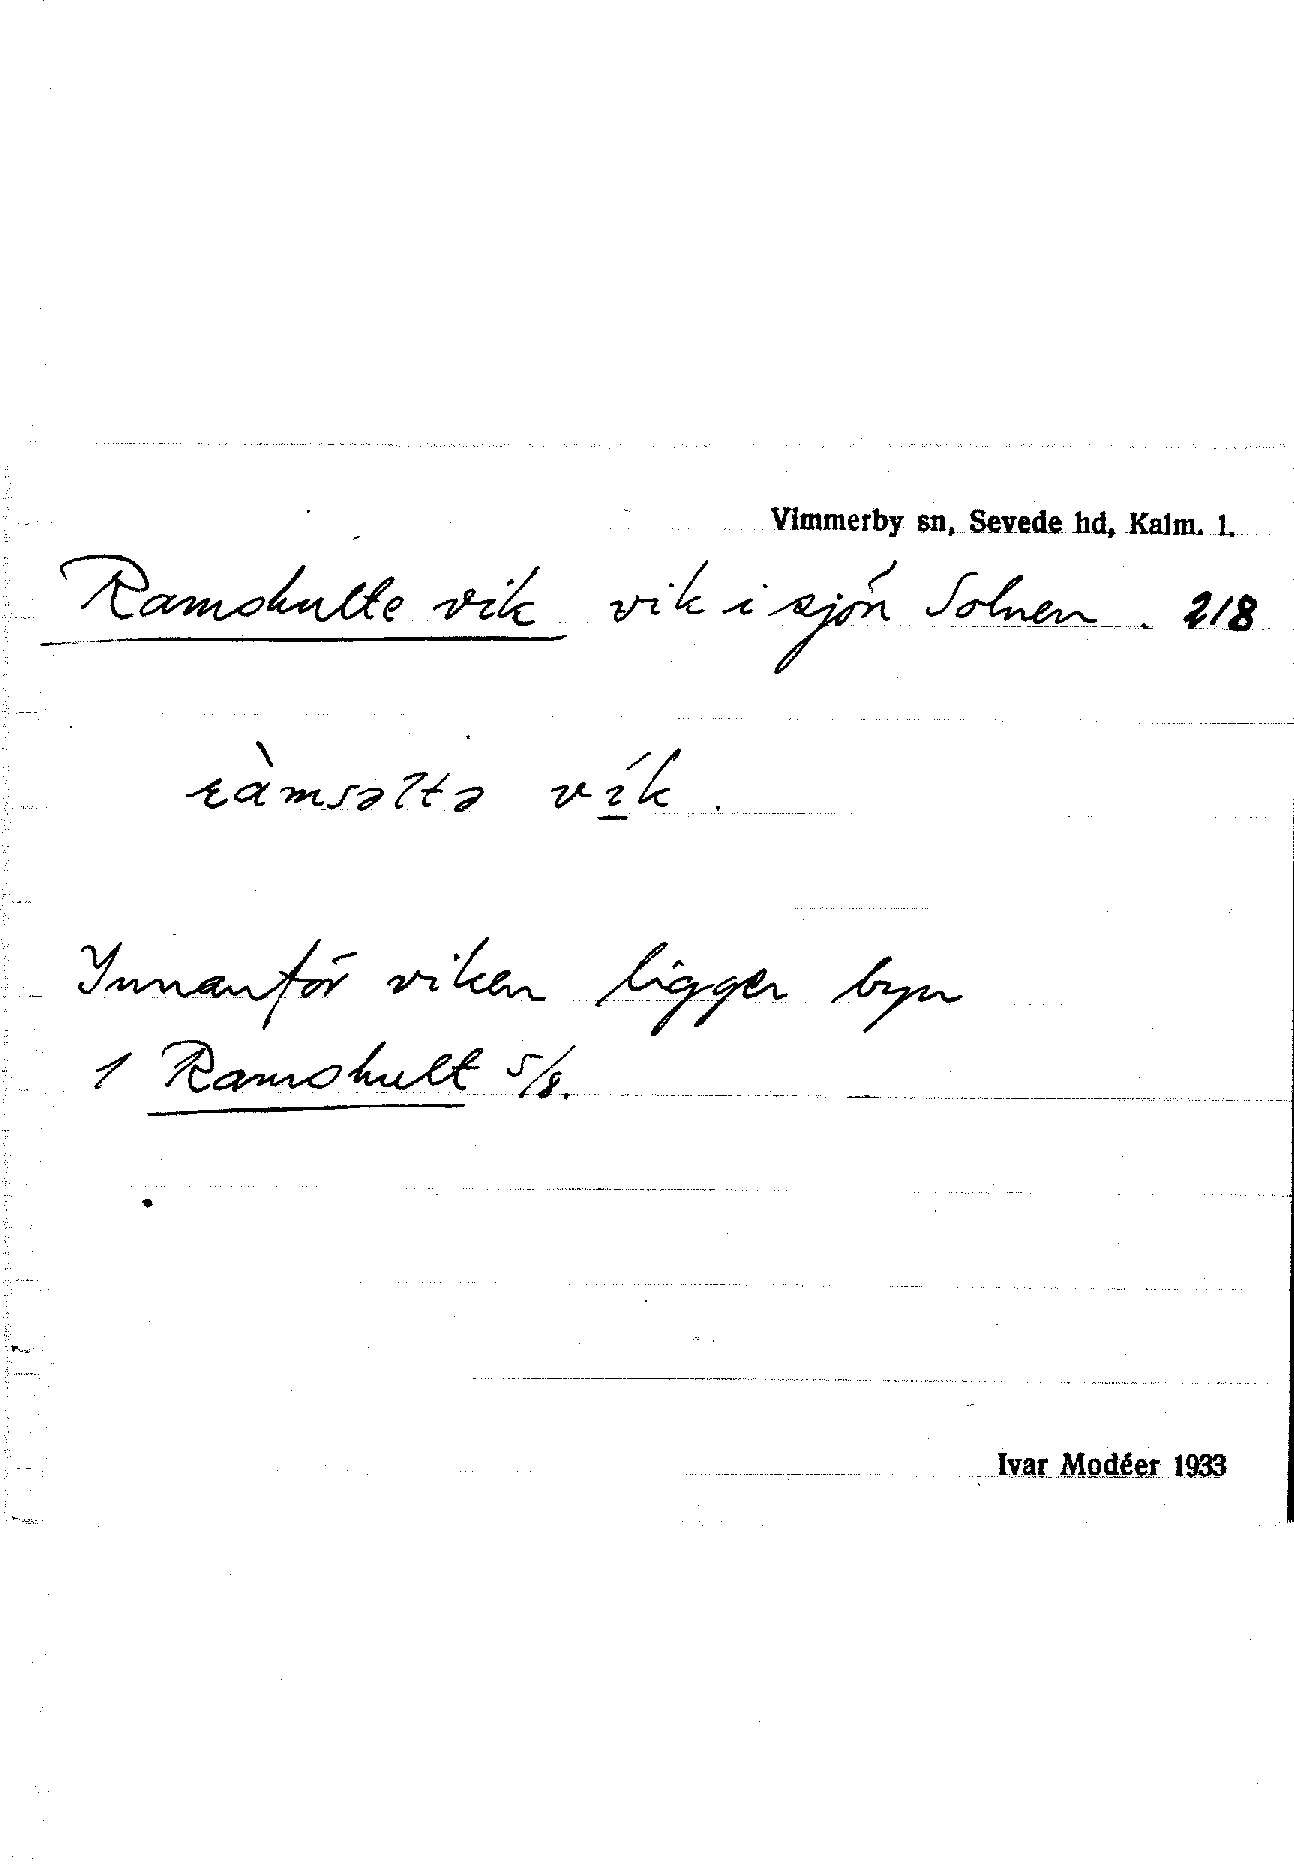 Vimmerby sn, Sevede hd, Kalm. l.
Ramshulte vik vik i sjön Solnen. 218
ràmsəltə vík.
Innanför viken ligger byn
1 Ramshult 5/8.
Ivar Modéer 1933